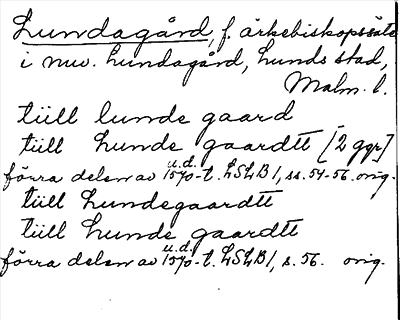 Lundagård, f. ärkebiskopssäte
i nuv. Lundagård, Lunds stad,
Malm. l.
tiill lunde gaard
tiill Lunde gaardtt [2 ggr]
förra delen av u.d. 1570-t. LSLB 1, ss. 54-56. orig.
tiill Lundegaardtt
tiill Lunde gaardtt
förra delen av u.d. 1570-t. LSLB 1, s. 56. orig.